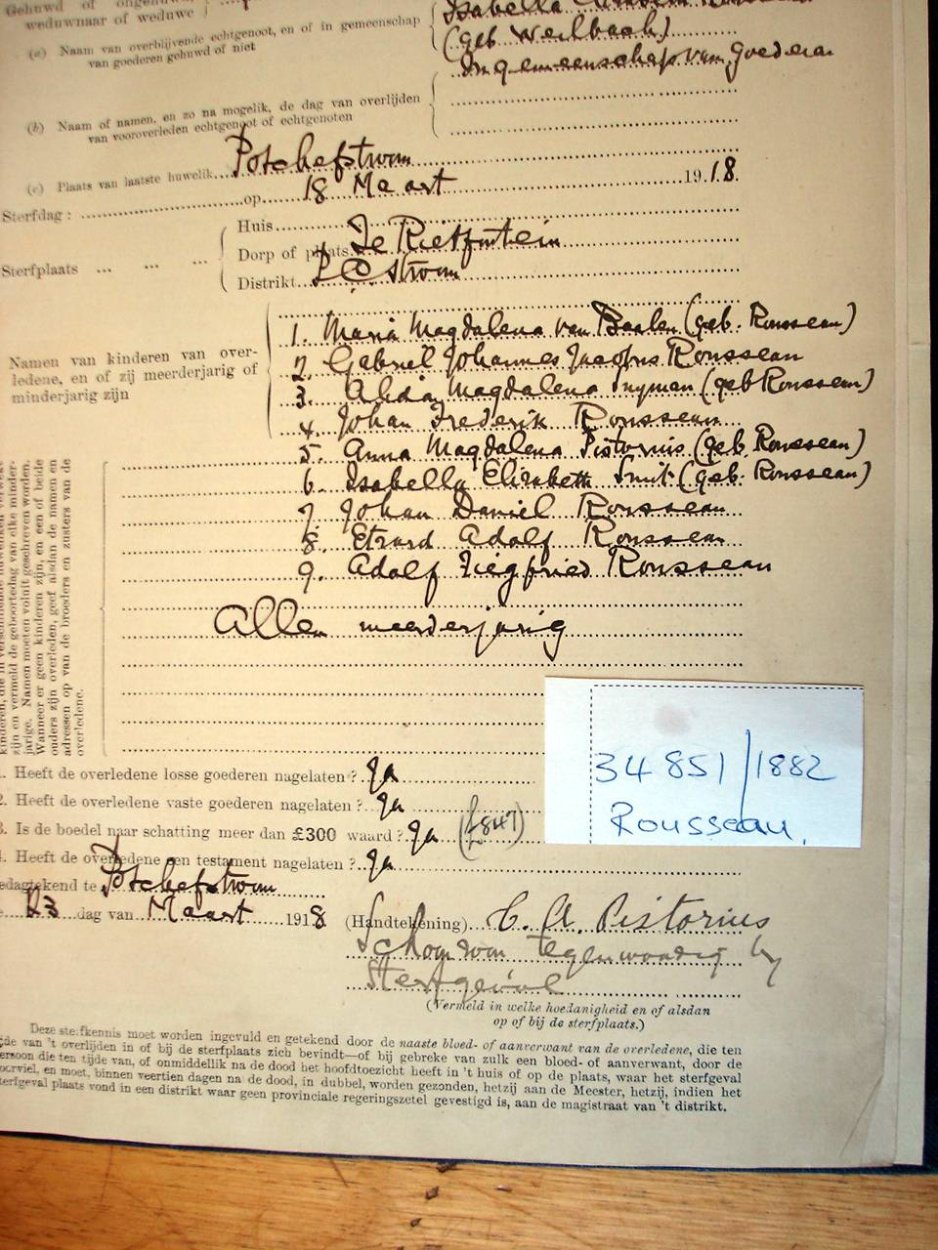 Gehuwd of ongehuwd,
weduwnaar of weduwe
Isabella
(a) Naam van overblijvende echtgenoot, en of in gemeenschap
van goederen gehuwd of niet
(geb. Weilbach)
In gemeenschap van goederen
(b) Naam of namen, en zo na mogelik, de dag van overlijden
van vooroverleden echtgenoot of echtgenoten
(c) Plaats van laatste huwelik Potchefstroom
Sterfdag: op 18 Maart 1918
Sterfplaats ... ... ...
Huis
Dorp of plaats Te Rietfontein
Distrikt P.C.Stroom
Namen van kinderen van over-
ledene, en of zij meerderjarig of
minderjarig zijn
1. Maria Magdalena van Baalen (geb. Rousseau)
2. Gabriel Johannes Jacobus Rousseau
3. Alida Magdalena Snyman (geb Rousseau)
4. Johan Frederik Rousseau
5. Anna Magdalena Pistorius (geb. Rousseau)
6. Isabella Elizabeth Smit (geb. Rousseau)
7. Johan Daniel Rousseau
8. Etzard Adolf Rousseau
9. Adolf Ziegfried Rousseau
Allen meerderjarig
zijn en vermeld de geboortedag van elke minder-
jarige. Namen moeten voluit geschreven worden.
Wanneer er geen kinderen zijn, en een of beide
ouders zijn overleden, geef alsdan de namen en
adressen op van de broeders en zusters van de
overledene.
1. Heeft de overledene losse goederen nagelaten? Ja
2. Heeft de overledene vaste goederen nagelaten? Ja
3. Is de boedel naar schatting meer dan £300 waard? Ja (£847)
4. Heeft de overledene een testament nagelaten? Ja
Gedagtekend te Potchefstroom
23 dag van Maart 1918
(Handtekening) C. A. Pistorius
Schoonzoon tegenwoordig by
Sterfgeval
(Vermeld in welke hoedanigheid en of alsdan
op of bij de sterfplaats.)
34851/1882
Rousseau.
Deze sterfkennis moet worden ingevuld en getekend door de naaste bloed- of aanverwant van de overledene, die ten
tijde van 't overlijden in of bij de sterfplaats zich bevindt—of bij gebreke van zulk een bloed- of aanverwant, door de
persoon die ten tijde van, of onmiddellik na de dood het hoofdtoezicht heeft in 't huis of op de plaats, waar het sterfgeval
voorviel, en moet, binnen veertien dagen na de dood, in dubbel, worden gezonden, hetzij aan de Meester, hetzij, indien het
sterfgeval plaats vond in een distrikt waar geen provinciale regeringszetel gevestigd is, aan de magistraat van 't distrikt.